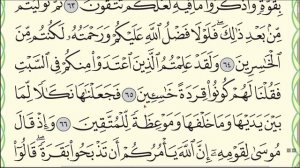 بِقُوَّةٍ وَاذْكُرُوا مَا فِيهِ لَعَلَّكُمْ تَتَّقُونَ ٦٣ ثُمَّ تَوَلَّيْتُمْ
مِنْ بَعْدِ ذَٰلِكَ فَلَوْلَا فَضْلُ اللَّهِ عَلَيْكُمْ وَرَحْمَتُهُ لَكُنْتُمْ مِنَ
الْخَاسِرِينَ ٦٤ وَلَقَدْ عَلِمْتُمُ الَّذِينَ اعْتَدَوْا مِنْكُمْ فِي السَّبْتِ
فَقُلْنَا لَهُمْ كُونُوا قِرَدَةً خَاسِئِينَ ٦٥ فَجَعَلْنَاهَا نَكَالًا لِمَا
بَيْنَ يَدَيْهَا وَمَا خَلْفَهَا وَمَوْعِظَةً لِلْمُتَّقِينَ ٦٦ وَإِذْ قَالَ
مُوسَىٰ لِقَوْمِهِ إِنَّ اللَّهَ يَأْمُرُكُمْ أَنْ تَذْبَحُوا بَقَرَةً قَالُوا